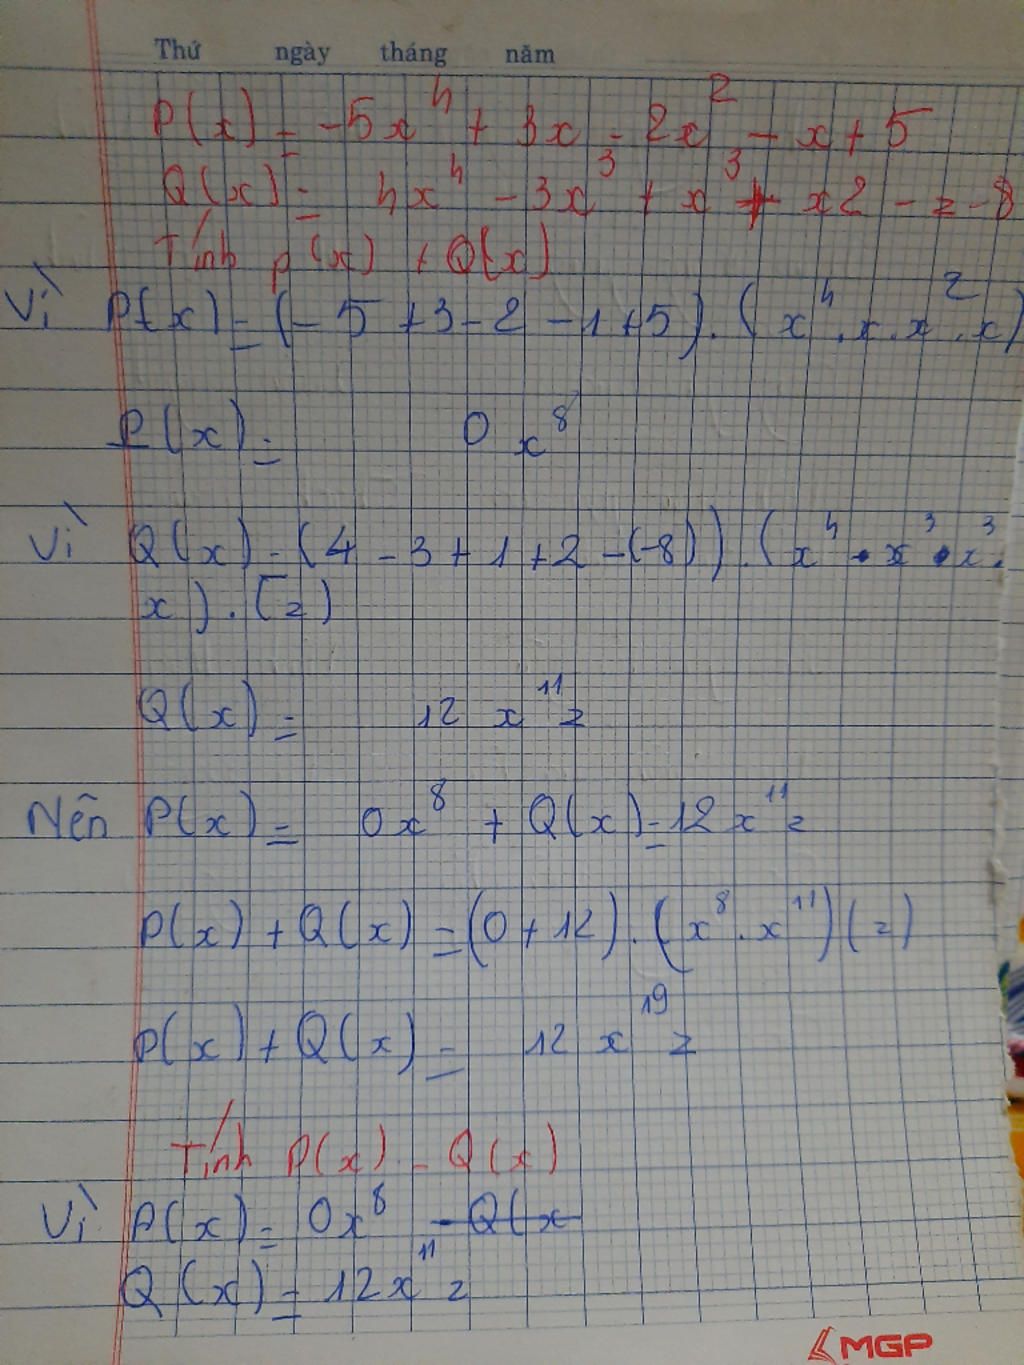 Thứ ngày tháng năm
P(x) = -5x⁴ + 3x - 2x² - x + 5
Q(x) = 4x⁴ - 3x³ + x³ + x2 - z - 8
Tính p(x) + Q(x)
Vì P(x) = (-5 + 3 - 2 - 1 + 5) . (x⁴ . x . x² . x)
P(x) = 0 x⁸
Vì Q(x) = (4 - 3 + 1 + 2 - (-8)) . (x⁴ . x³ . x³ .
x) . (z)
Q(x) = 12 x¹¹ z
Nên P(x) = 0x⁸ + Q(x) = 12x¹¹ z
P(x) + Q(x) = (0 + 12) . (x⁸ . x¹¹) (z)
P(x) + Q(x) = 12 x¹⁹ z
Tính P(x) - Q(x)
Vì P(x) = 0x⁸ - Q(x
Q(x) = 12x¹¹ z
MGP